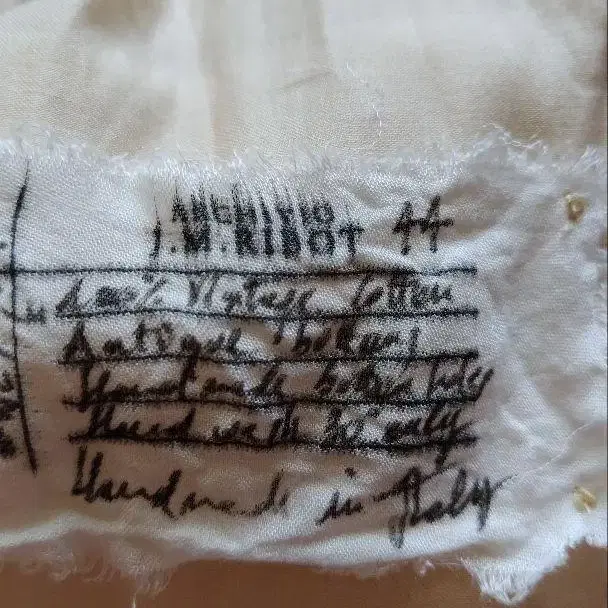 ARCHIVIO
J.M.RIBOT 44
100% Vintage Cotton
Antique buttons
Handmade button holes
Hand wash 30° only
Handmade in Italy